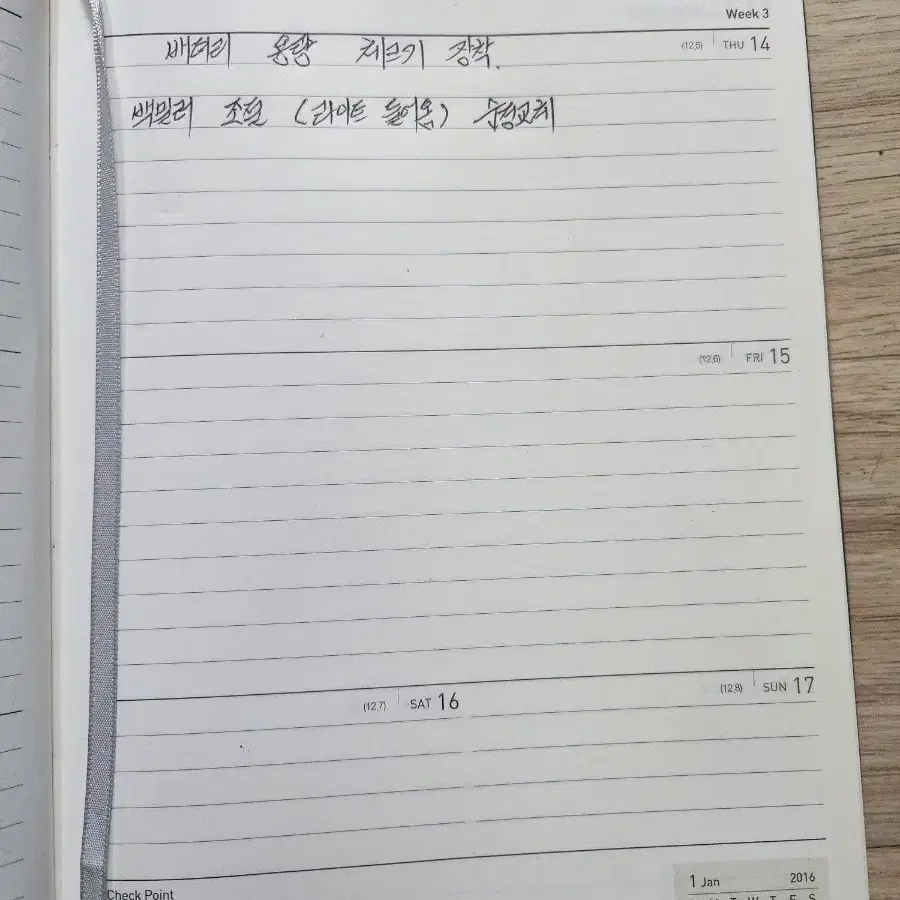 Week 3
(12,5) THU 14
배터리 용량 체크기 장착.
백밀러 조절 (라이트 들어옴) 수정교체
(12,6) FRI 15
(12,7) SAT 16
(12,8) SUN 17
Check Point
1 Jan 2016
T W T F S